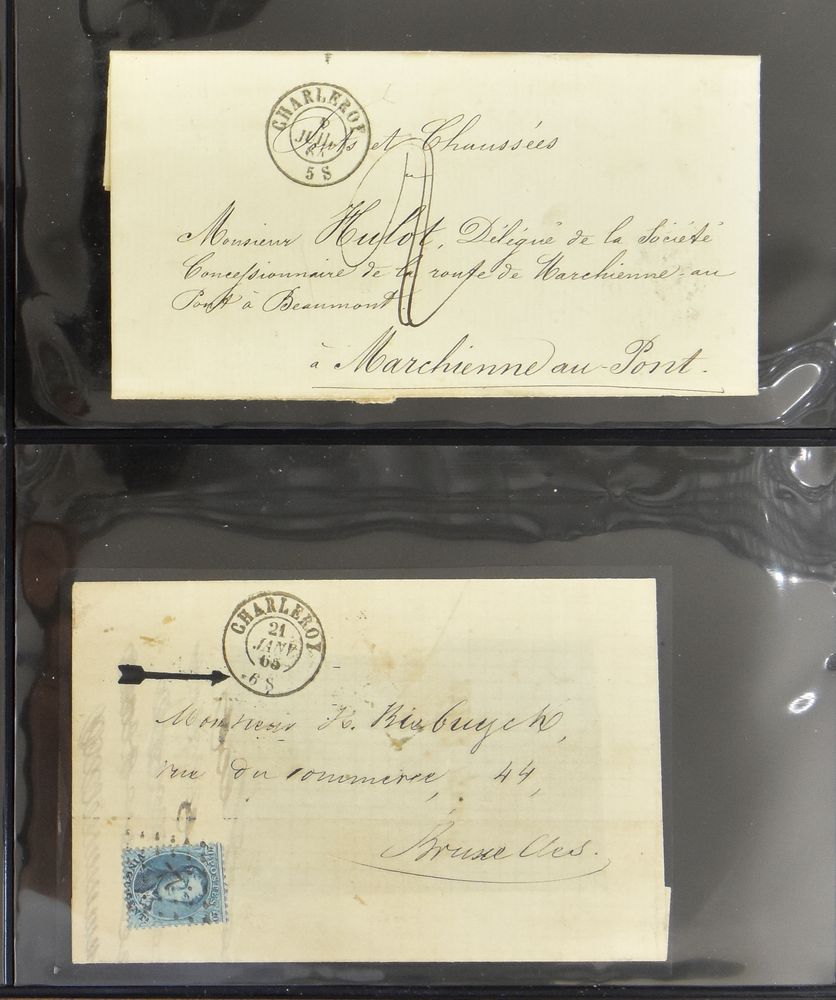 CHARLEROY
JUIL
5 S
Ponts et Chaussées
Monsieur Hulot, Délégué de la Société
Concessionnaire de la route de Marchienne-au
Pont à Beaumont
à Marchienne au-Pont.
CHARLEROY
21
JANV
65
6 S
Monsieur
rue du commerce, 44,
Bruxelles.
POSTES